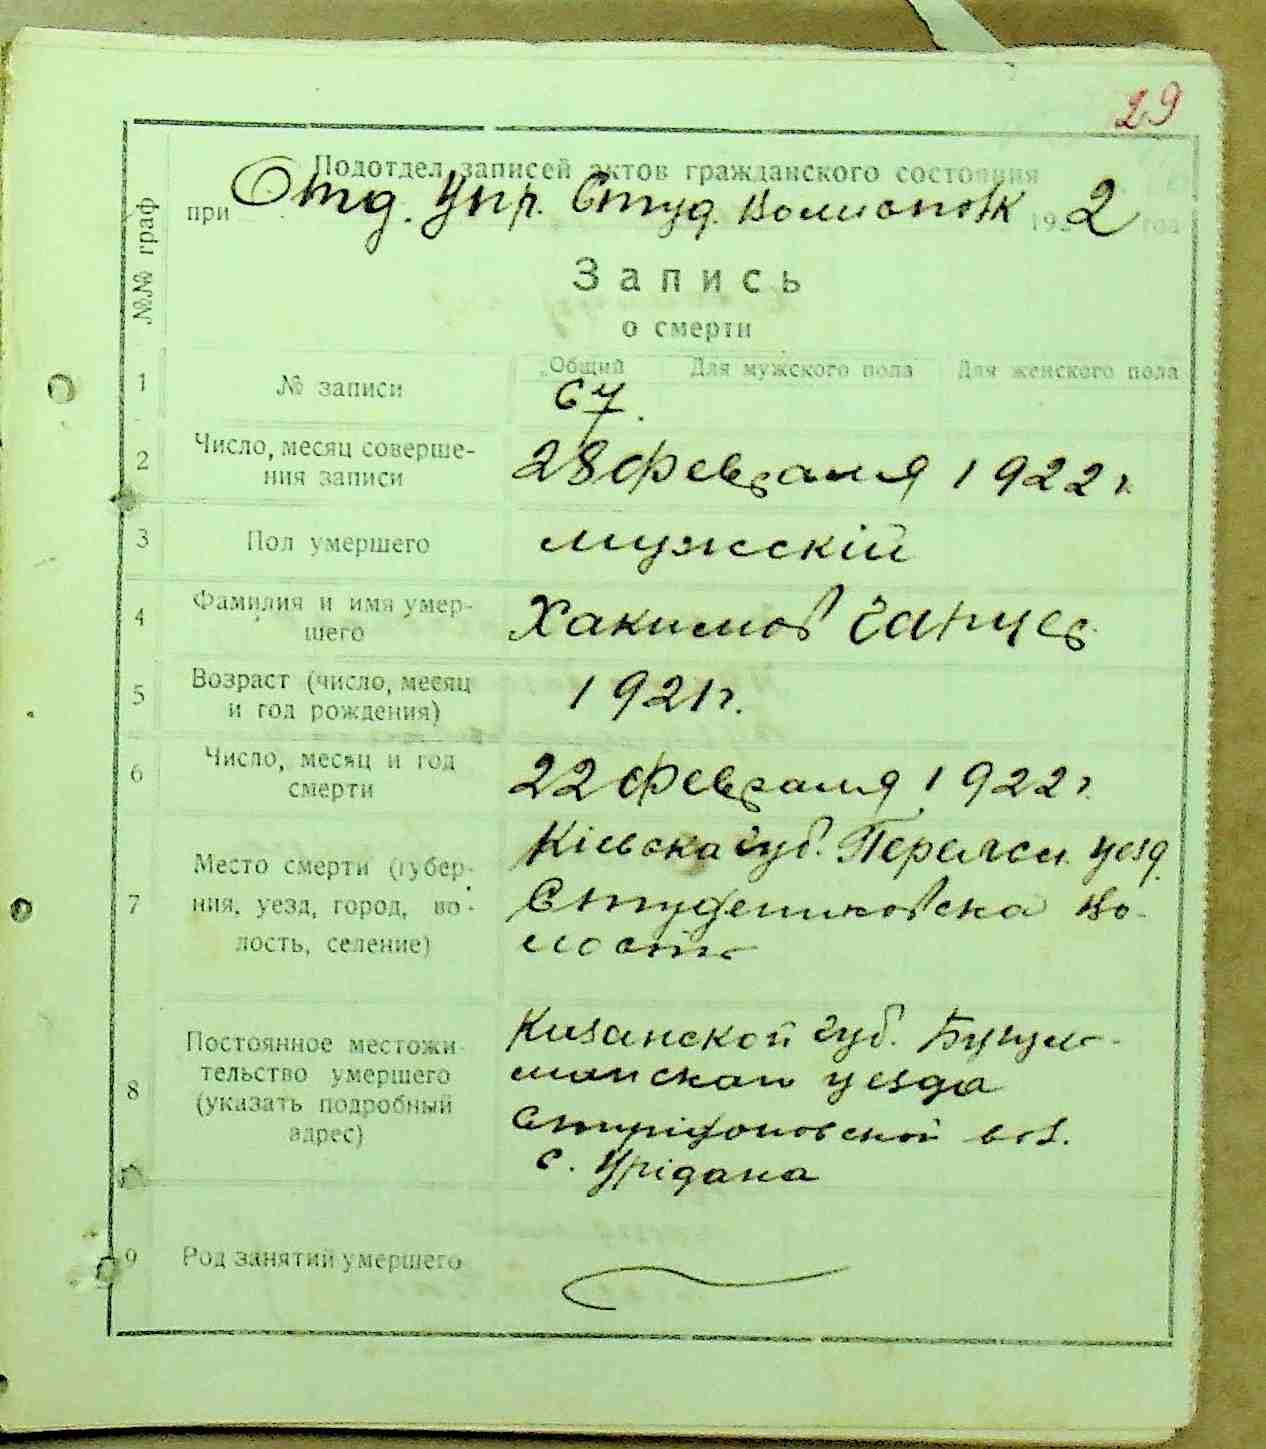 29
Подотдел записей актов гражданского состояния
при Отд. Упр. Студ. Волисполк 192 2 год
№№ граф
Запись
о смерти
Общий Для мужского пола Для женского пола
1 № записи 67.
2 Число, месяц соверше- 28 февраля 1922 г.
ния записи
3 Пол умершего мужскій
4 Фамилия и имя умер- Хакимов
шего
5 Возраст (число, месяц 1921 г.
и год рождения)
6 Число, месяц и год 22 февраля 1922 г.
смерти
7 Место смерти (губер- Кіевска губ. Переясл. уезд.
ния, уезд, город, во- Студениковска во-
лость, селение) лость
8 Постоянное местожи- Казанской губ. Бугуль-
тельство умершего уезда
(указать подробный вол.
адрес) с. Урідана
9 Род занятий умершего